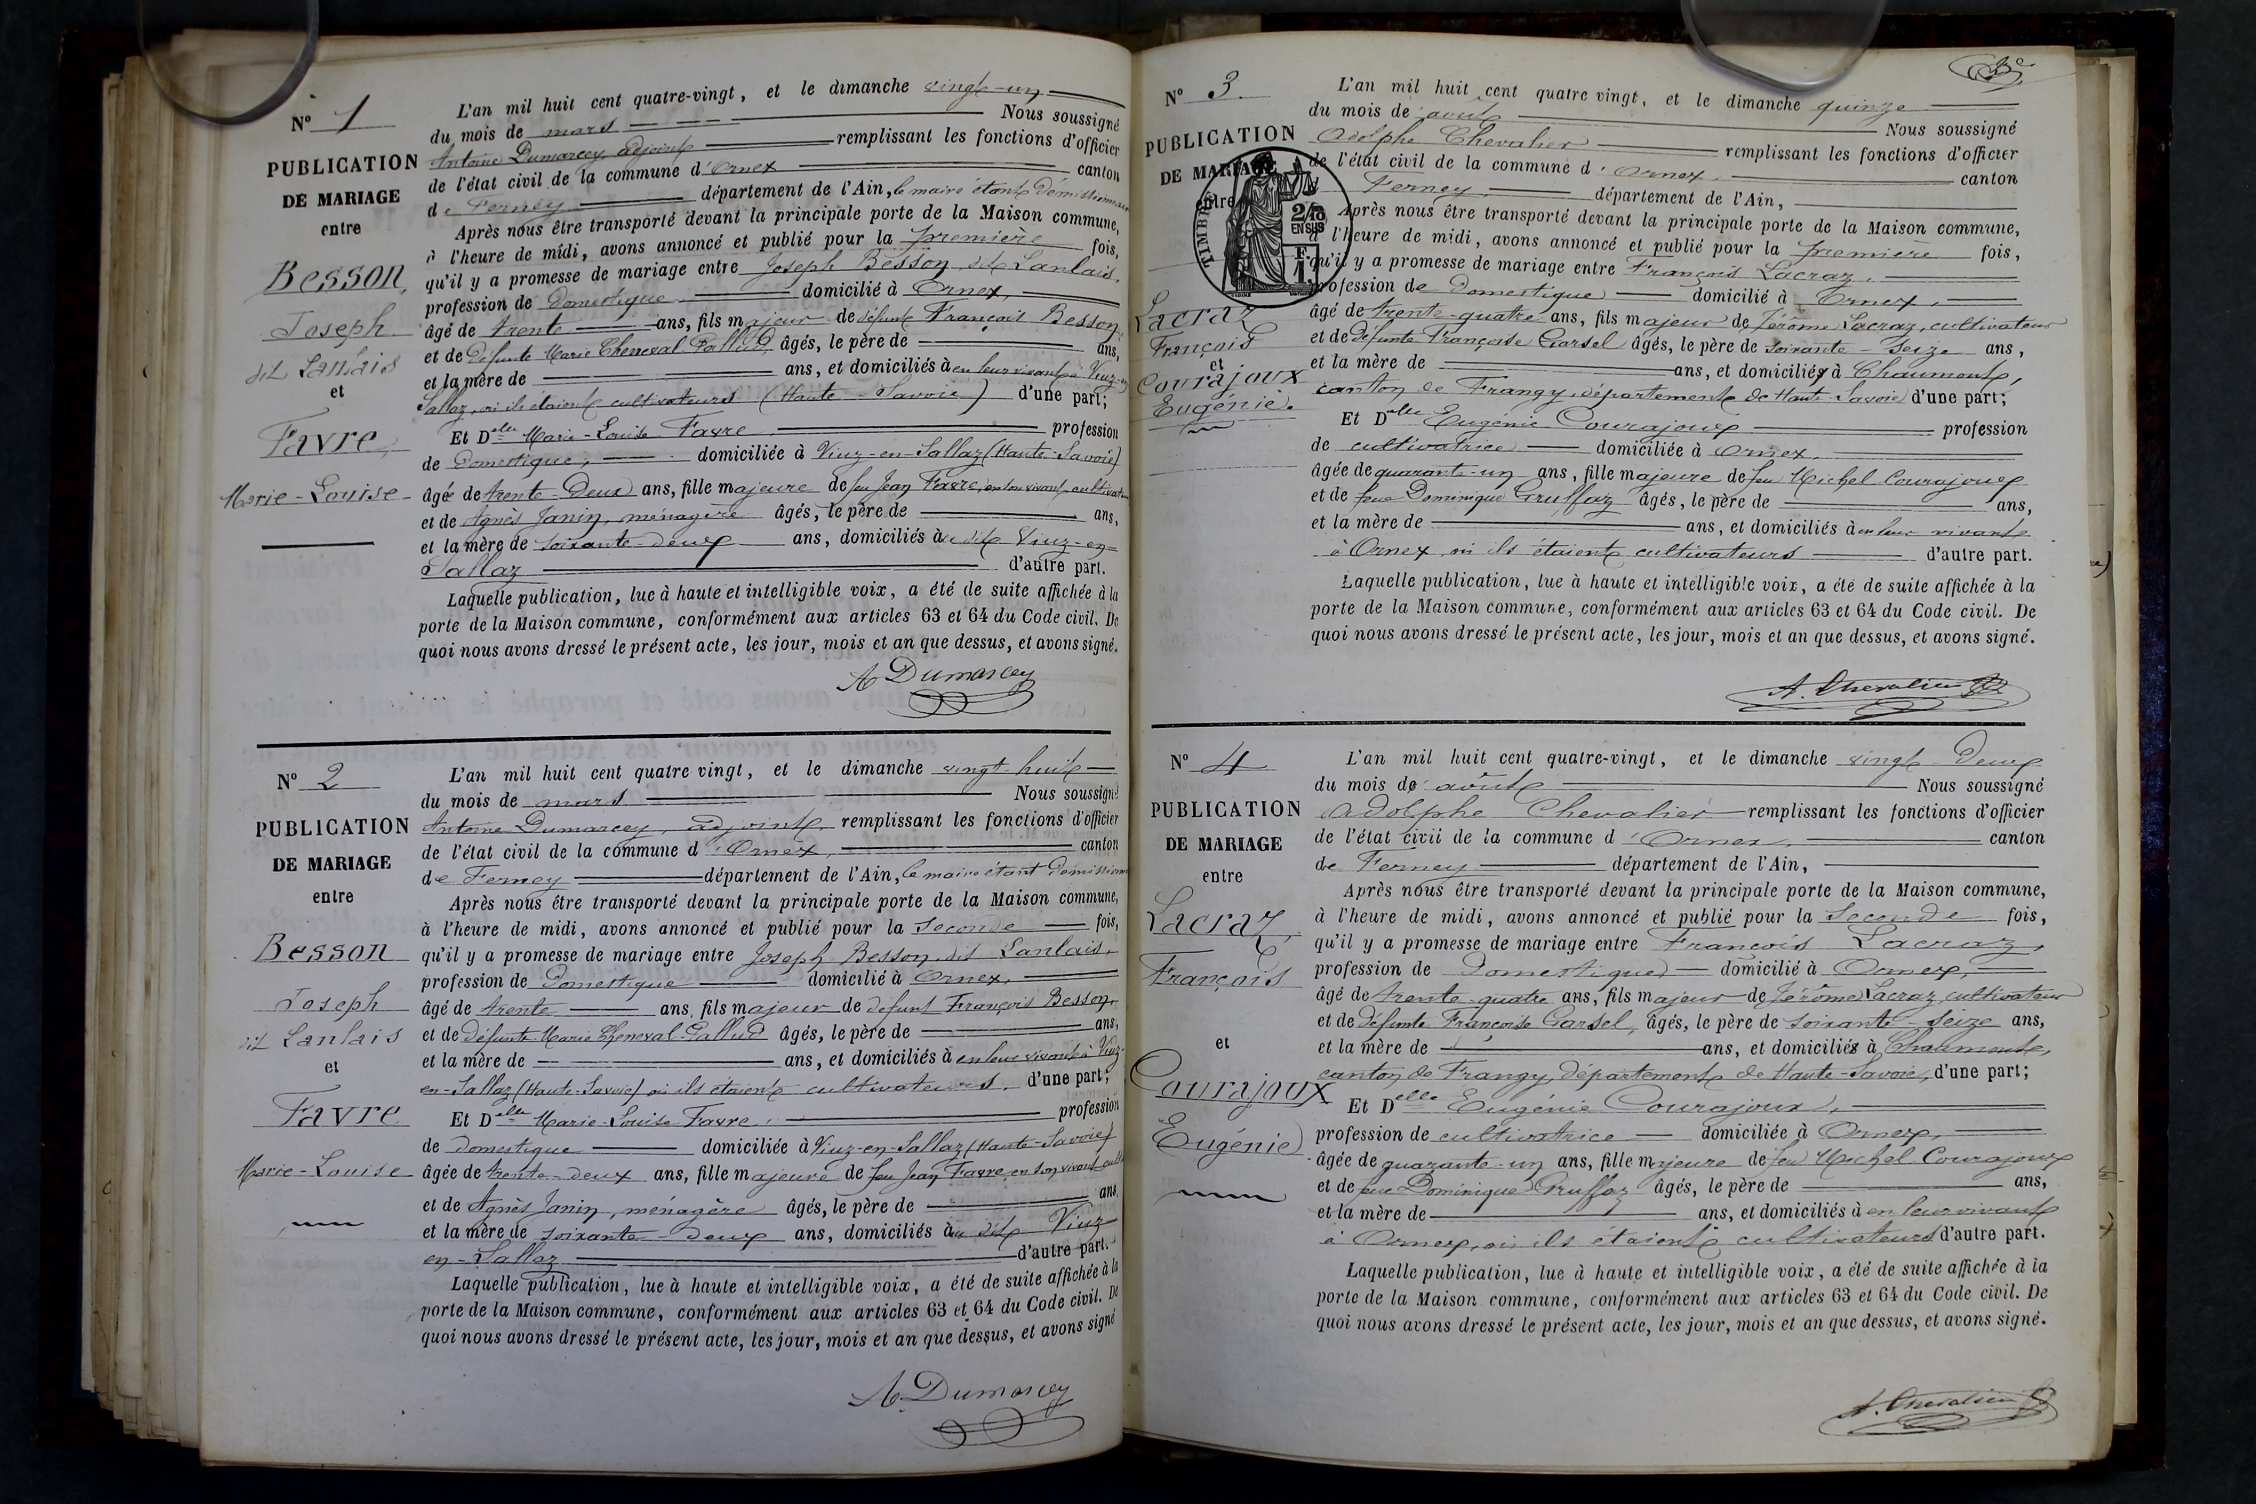 N° 1
PUBLICATION
DE MARIAGE
entre
Besson,
Joseph
dit Lanlais
et
Favre,
Marie-Louise
L'an mil huit cent quatre-vingt, et le dimanche vingt-un
du mois de mars Nous soussigné
Antoine Dumarcey, adjoint remplissant les fonctions d'officier
de l'état civil de la commune d'Ornex canton
de Ferney département de l'Ain, le maire étant démissionnaire
Après nous être transporté devant la principale porte de la Maison commune,
à l'heure de midi, avons annoncé et publié pour la première fois,
qu'il y a promesse de mariage entre Joseph Besson dit Lanlais,
profession de domestique domicilié à Ornex,
âgé de trente ans, fils majeur de défunt François Besson
et de défunte Marie Cheneval-Pallud, âgés, le père de ans,
et la mère de ans, et domiciliés à en leur vivant à Viuz-en
Sallaz, où ils étaient cultivateurs (Haute-Savoie) d'une part;
Et Delle Marie-Louise Favre profession
de domestique, domiciliée à Viuz-en-Sallaz (Haute-Savoie)
âgée de trente-deux ans, fille majeure de feu Jean Favre, en son vivant cultivateur
et de Agnès Janin, ménagère âgés, le père de ans,
et la mère de soixante-deux ans, domiciliés à dit Viuz-en-
Sallaz d'autre part.
Laquelle publication, lue à haute et intelligible voix, a été de suite affichée à la
porte de la Maison commune, conformément aux articles 63 et 64 du Code civil. De
quoi nous avons dressé le présent acte, les jour, mois et an que dessus, et avons signé.
A Dumarcey
N° 2
PUBLICATION
DE MARIAGE
entre
Besson
Joseph
dit Lanlais
et
Favre
Marie-Louise
L'an mil huit cent quatre vingt, et le dimanche vingt-huit
du mois de mars Nous soussigné
Antoine Dumarcey, adjoint, remplissant les fonctions d'officier
de l'état civil de la commune d'Ornex, canton
de Ferney département de l'Ain, le maire étant démissionn
Après nous être transporté devant la principale porte de la Maison commune,
à l'heure de midi, avons annoncé et publié pour la seconde fois,
qu'il y a promesse de mariage entre Joseph Besson dit Lanlais,
profession de domestique domicilié à Ornex,
âgé de trente ans, fils majeur de défunt François Besson,
et de défunte Marie Cheneval-Pallud âgés, le père de ans,
et la mère de ans, et domiciliés à en leur vivant à Viuz-
en-Sallaz (Haute-Savoie) où ils étaient cultivateurs. d'une part;
Et Delle Marie-Louise Favre, profession
de domestique domiciliée à Viuz-en-Sallaz (Haute-Savoie)
âgée de trente-deux ans, fille majeure de feu Jean Favre, en son vivant cult
et de Agnès Janin, ménagère âgés, le père de ans
et la mère de soixante-deux ans, domiciliés à dit Viuz
en-Sallaz d'autre part.
Laquelle publication, lue à haute et intelligible voix, a été de suite affichée à la
porte de la Maison commune, conformément aux articles 63 et 64 du Code civil. De
quoi nous avons dressé le présent acte, les jour, mois et an que dessus, et avons signé
A. Dumarcey
N° 3
PUBLICATION
DE MARIAGE
entre
TIMBRE
2/10
EN SUS
F
1
Lacraz
François
et
Courajoux
Eugénie.
L'an mil huit cent quatre vingt, et le dimanche quinze
du mois de août Nous soussigné
Adolphe Chevalier remplissant les fonctions d'officier
de l'état civil de la commune d'Ornex canton
Ferney département de l'Ain,
Après nous être transporté devant la principale porte de la Maison commune,
à l'heure de midi, avons annoncé et publié pour la première fois,
qu'il y a promesse de mariage entre François Lacraz,
profession de domestique domicilié à Ornex,
âgé de trente-quatre ans, fils majeur de Jérôme Lacraz, cultivateur
et de défunte Françoise Garsel âgés, le père de soixante-seize ans,
et la mère de ans, et domiciliés à Chaumont,
canton de Frangy, département de Haute-Savoie d'une part;
Et Delle Eugénie Courajoux profession
de cultivatrice domiciliée à Ornex.
âgée de quarante-un ans, fille majeure de feu Michel Courajoux
et de feue Dominique Gruffaz âgés, le père de ans,
et la mère de ans, et domiciliés à en leur vivant
à Ornex, où ils étaient cultivateurs d'autre part.
Laquelle publication, lue à haute et intelligible voix, a été de suite affichée à la
porte de la Maison commune, conformément aux articles 63 et 64 du Code civil. De
quoi nous avons dressé le présent acte, les jour, mois et an que dessus, et avons signé.
A. Chevalier
N° 4
PUBLICATION
DE MARIAGE
entre
Lacraz,
François
et
Courajoux
Eugénie
L'an mil huit cent quatre-vingt, et le dimanche vingt-deux
du mois de août Nous soussigné
Adolphe Chevalier remplissant les fonctions d'officier
de l'état civil de la commune d'Ornex, canton
de Ferney département de l'Ain,
Après nous être transporté devant la principale porte de la Maison commune,
à l'heure de midi, avons annoncé et publié pour la seconde fois,
qu'il y a promesse de mariage entre François Lacraz,
profession de domestique domicilié à Ornex,
âgé de trente-quatre ans, fils majeur de Jérôme Lacraz, cultivateur
et de défunte Françoise Garsel, âgés, le père de soixante-seize ans,
et la mère de ans, et domiciliés à Chaumont,
canton de Frangy, département de Haute-Savoie, d'une part;
Et Delle Eugénie Courajoux,
profession de cultivatrice domiciliée à Ornex,
âgée de quarante-un ans, fille majeure de feu Michel Courajoux
et de feue Dominique Gruffaz âgés, le père de ans,
et la mère de ans, et domiciliés à en leur vivant
à Ornex, où ils étaient cultivateurs d'autre part.
Laquelle publication, lue à haute et intelligible voix, a été de suite affichée à la
porte de la Maison commune, conformément aux articles 63 et 64 du Code civil. De
quoi nous avons dressé le présent acte, les jour, mois et an que dessus, et avons signé.
A. Chevalier